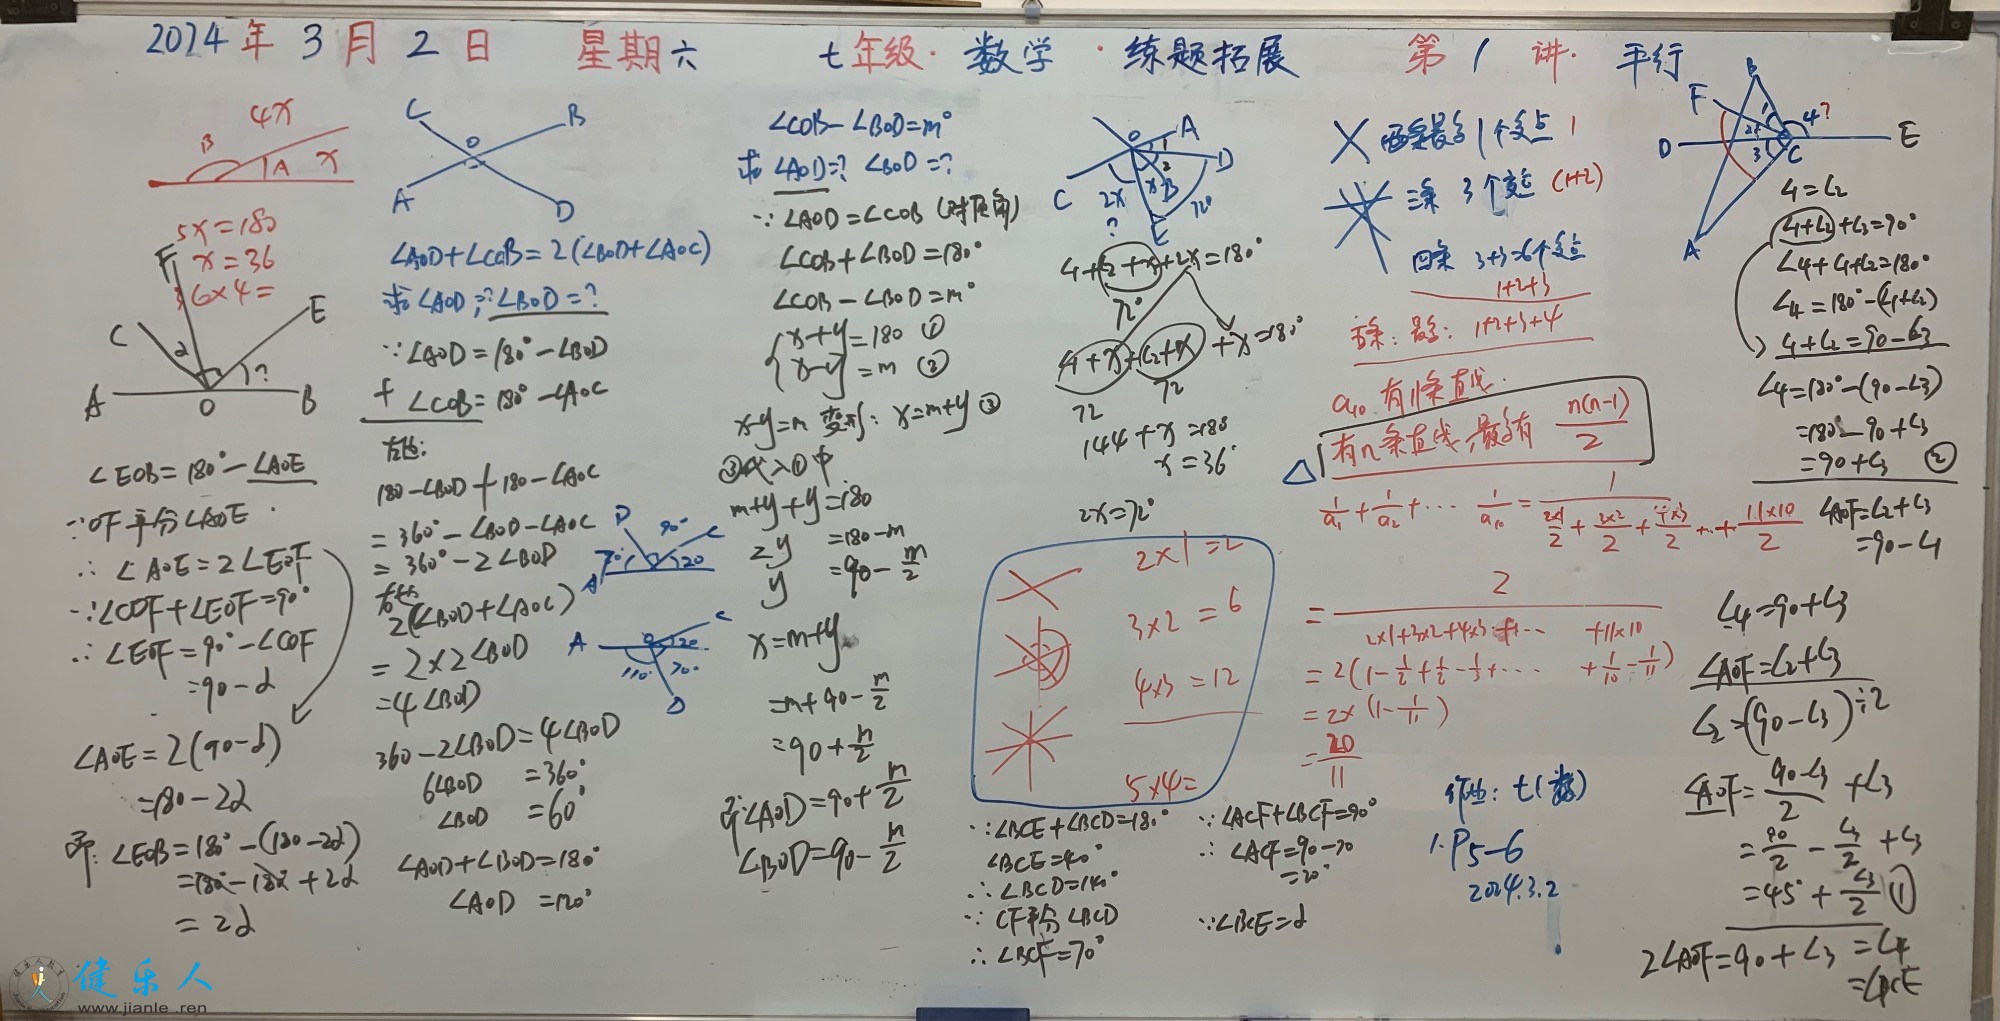 2024年3月2日 星期六 七年级·数学·练题拓展 第1讲·平行
4x
B
A
x
5x=180
x=36
36×4=
F
C
E
2
?
A
O
B
∠EOB=180°-∠AOE
∵OF平分∠AOE
∴∠AOE=2∠EOF
∵∠COF+∠EOF=90°
∴∠EOF=90°-∠COF
=90-α
∠AOE=2(90-α)
=180-2α
即:∠EOB=180°-(180-2α)
=180-180+2α
=2α
C
B
O
A
D
∠AOD+∠COB=2(∠BOD+∠AOC)
求∠AOD=?∠BOD=?
∵∠AOD=180°-∠BOD
+ ∠COB=180°-∠AOC
左边:
180-∠BOD+180-∠AOC
=360°-∠BOD-∠AOC
=360°-2∠BOD
右边
2(∠BOD+∠AOC)
=2×2∠BOD
=4∠BOD
360-2∠BOD=4∠BOD
6∠BOD=360°
∠BOD=60°
∠AOD+∠BOD=180°
∠AOD=120°
D
90°
C
70°
20
A
A
O
C
20
110°
70°
D
∠COB-∠BOD=m°
求∠AOD=? ∠BOD=?
∵∠AOD=∠COB(对顶角)
∠COB+∠BOD=180°
∠COB-∠BOD=m°
x+y=180 ①
x-y=m ②
x-y=m 变形:x=m+y ③
③代入①中
m+y+y=180
2y=180-m
y=90-m/2
x=m+y
=m+90-m/2
=90+m/2
即∠AOD=90+m/2
∠BOD=90-m/2
O
A
1
D
2
C
2x
x
B
72°
?
E
∠1+∠2+x+2x=180°
72°
∠1+x+∠2+x+x=180°
72
72
144+x=180
x=36°
2x=72°
2×1=2
3×2=6
4×3=12
5×4=
∵∠BCE+∠BCD=180°
∠BCE=40°
∴∠BCD=140°
∵CF平分∠BCD
∴∠BCF=70°
∵∠ACF+∠BCF=90°
∴∠ACF=90-70
=20°
∵∠BCE=α
两条最多1个交点 1
三条 3个交点 (1+2)
四条 3+3=6个交点
1+2+3
五条:最多:1+2+3+4
a10 有11条直线.
△ 有n条直线,最多有 n(n-1)/2
1/a1+1/a2+… 1/a10=1/(2×1/2+3×2/2+4×3/2…+11×10/2)
=2/(2×1+3×2+4×3+… +11×10)
=2(1-1/2+1/2-1/3+… +1/10-1/11)
=2×(1-1/11)
=20/11
作业:七(数)
1.P5-6
2024.3.2
B
F
1
4?
2
D
E
3
C
A
∠1=∠2
∠1+∠2+∠3=90°
∠4+∠1+∠2=180°
∠4=180°-(∠1+∠2)
∠1+∠2=90-∠3
∠4=180°-(90-∠3)
=180-90+∠3
=90+∠3 ②
∠AOF=∠2+∠3
=90-∠1
∠4=90+∠3
∠AOF=∠2+∠3
∠2=(90-∠3)÷2
∠AOF=(90-∠3)/2+∠3
=90/2-∠3/2+∠3
=45°+∠3/2 ①
2∠AOF=90+∠3=∠4
=∠BCE
健乐人
www.jianle.ren